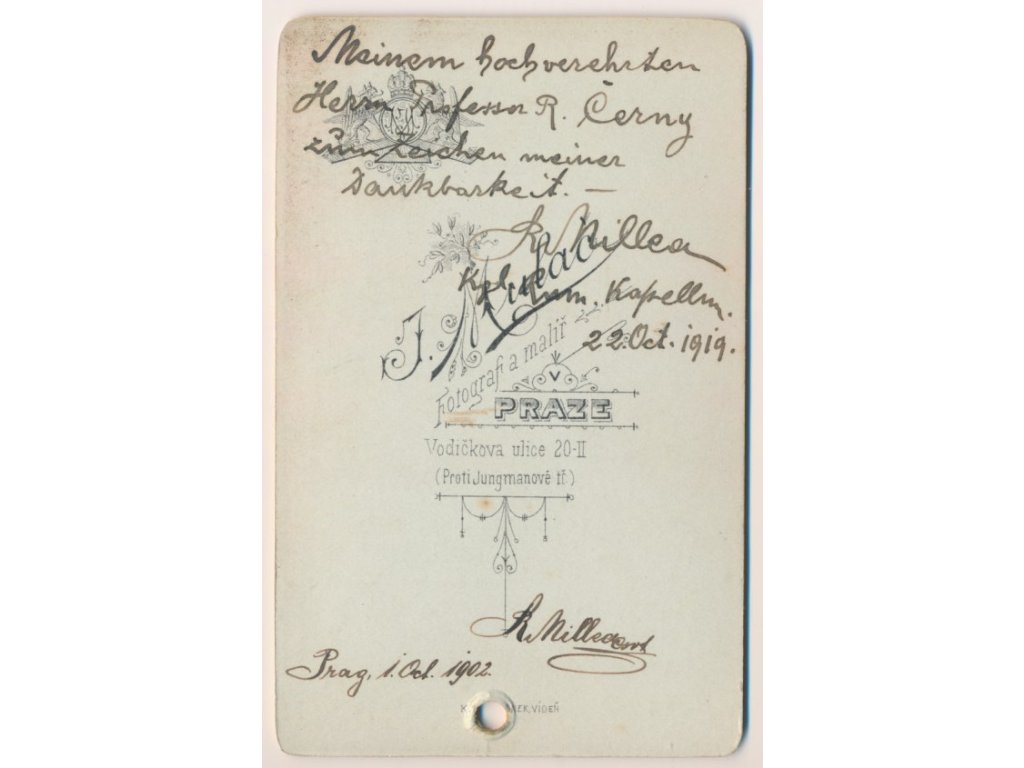 Meinem hochverehrten
Herrn Professor R. Černy
zum Zeichen meiner
Dankbarkeit. —
Kapellm.
22. Oct. 1919.
J.
Fotograf a malíř
V
PRAZE
Vodičkova ulice 20-II
(Proti Jungmanově tř.)
Prag, 1. Oct. 1902.
VÍDEŇ